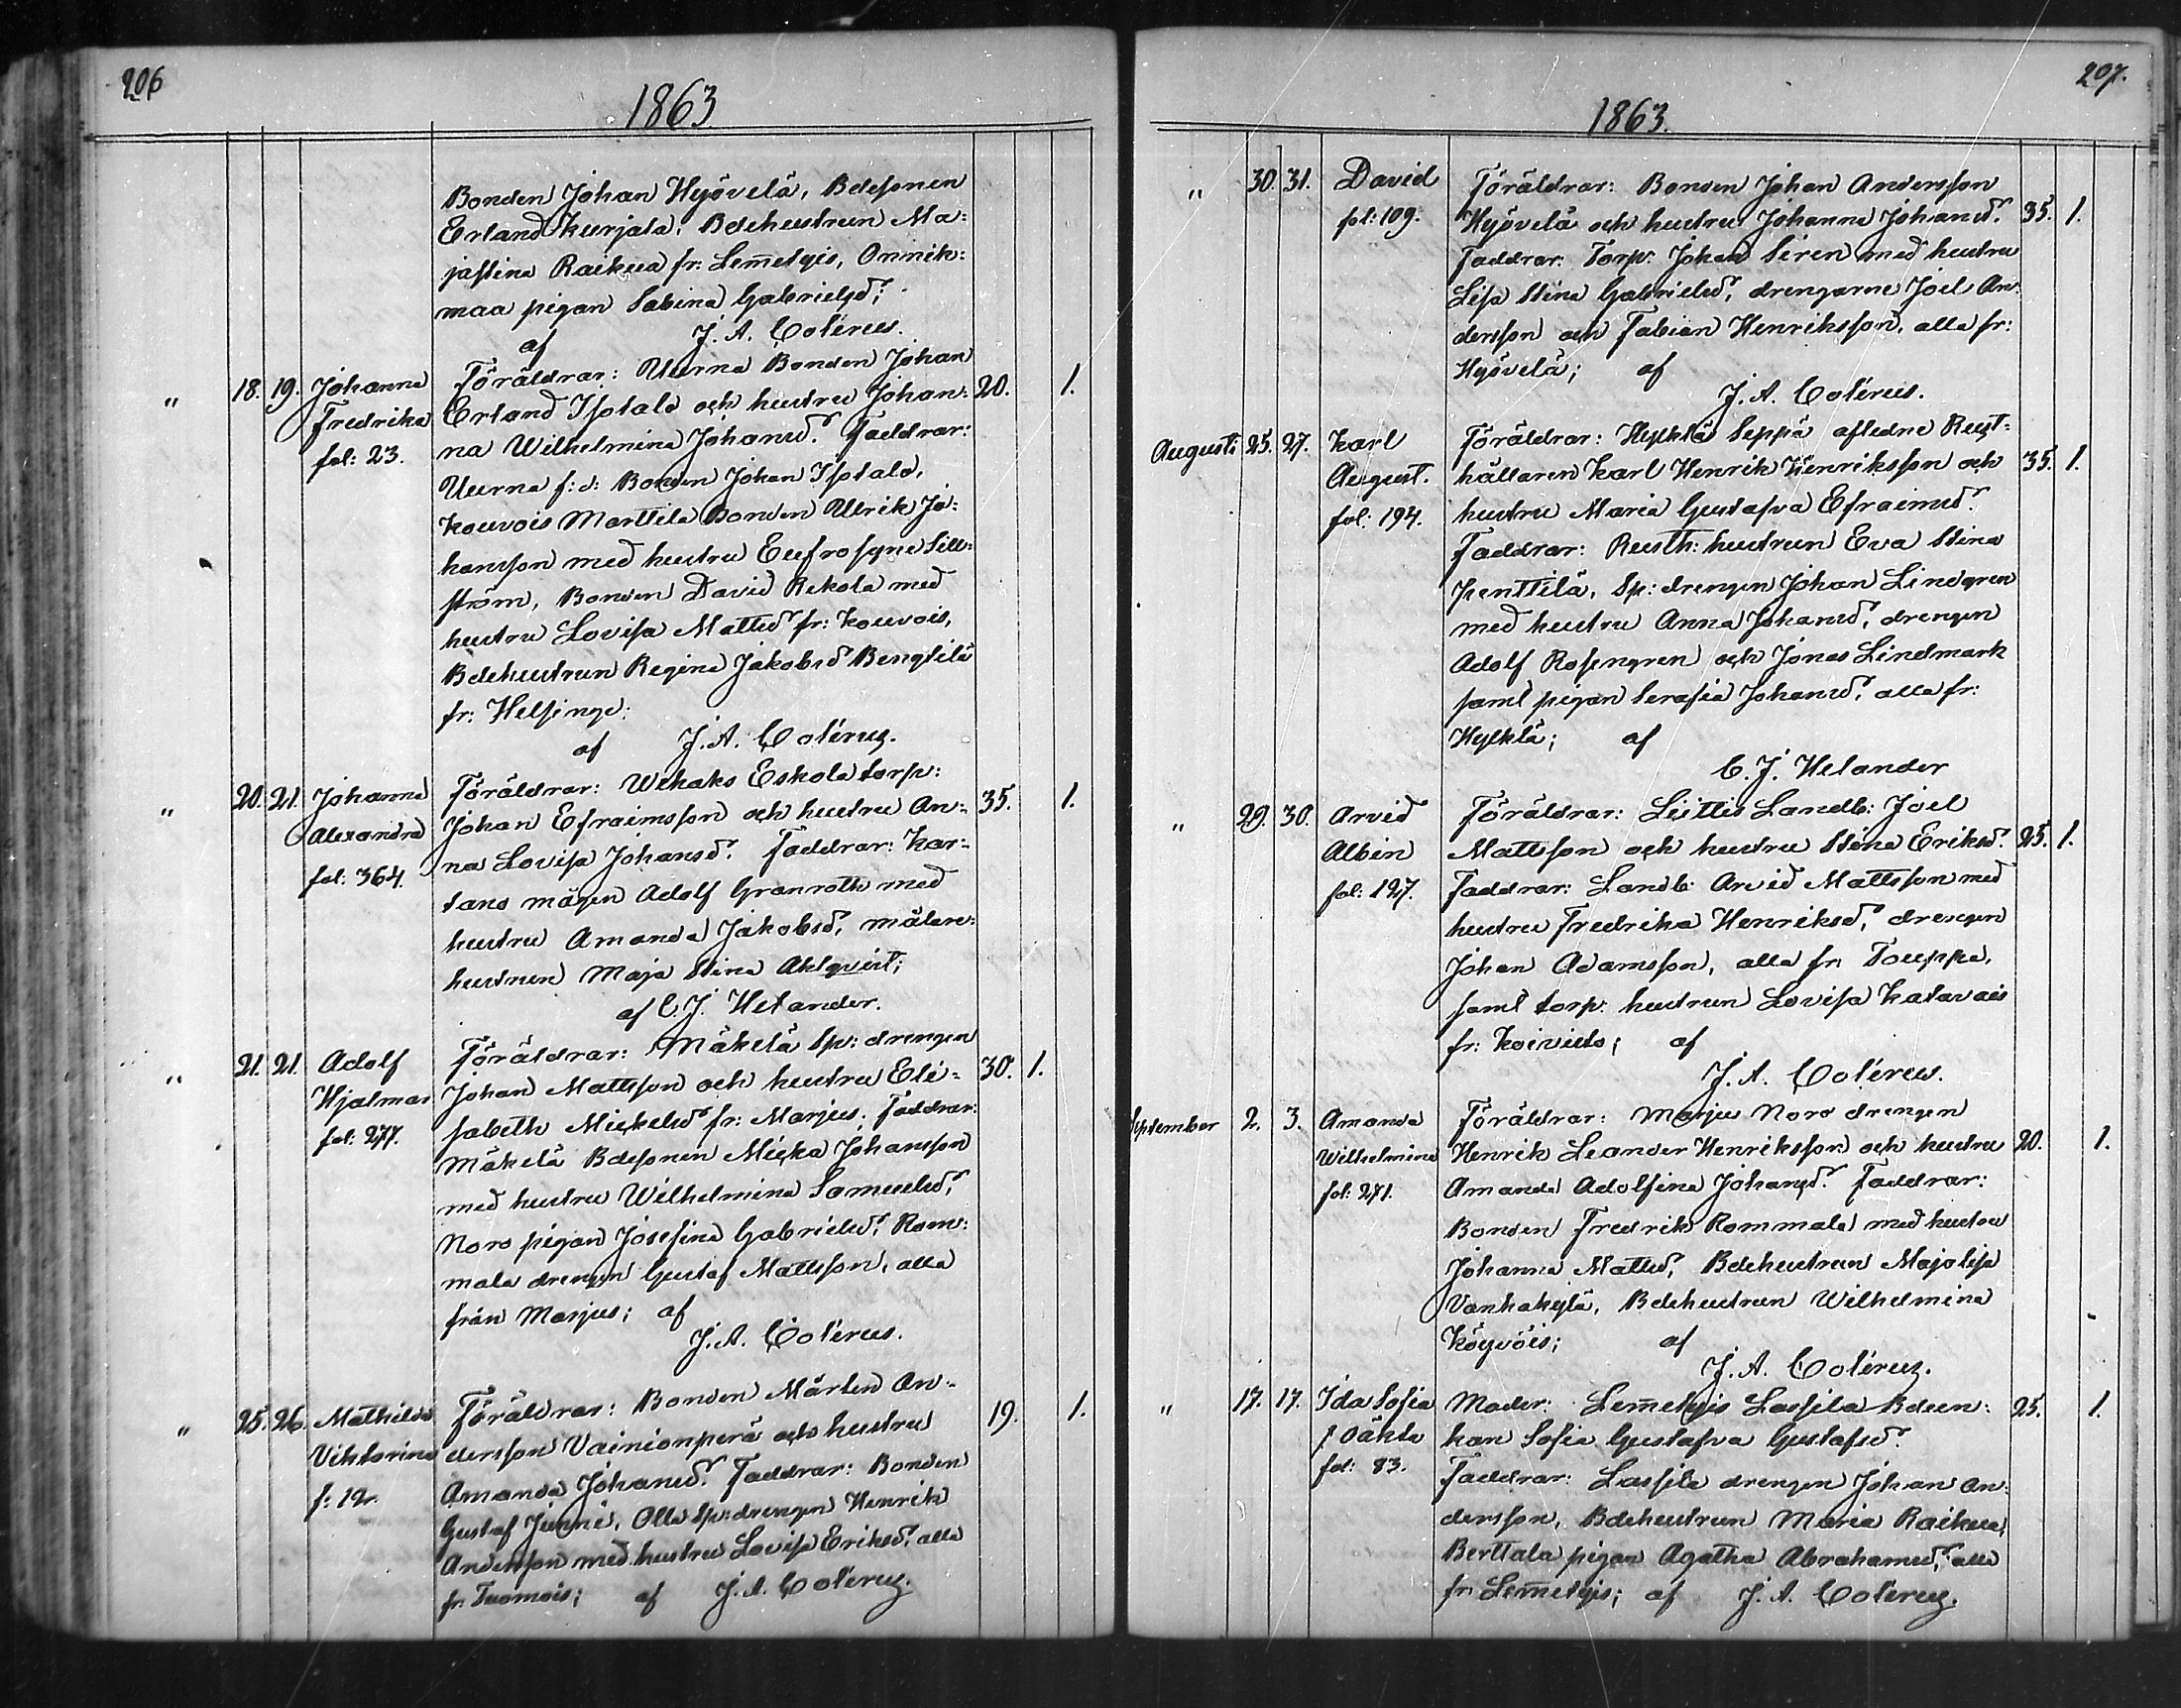 206
1863
Bonden Johan Hyövelä, Bdesonen
Erland Kurjala, Bdehustrun Ma-
jastina Raikua fr: Lem̄etyis, Onnik-
maa pigan Sabina Gabrielsd;
af J. A. Coterus.
" 18. 19. Johanna Föräldrar: Uurna Bonden Johan
Fredrika Erland Isotalo och hustru Johan- 20. 1.
fol: 23. na Wilhelmina Johansd. Faddrar:
Uurna f:d: Bonden Johan Isotalo,
Kouvois Marttila Bonden Ulrik Jo-
hansson med hustru Eufrosyne Sill-
ström, Bonden David Rekola med
hustru Lovisa Mattsd fr: Kouvois,
Bdehustrun Regina Jakobsd Bengtilä
fr: Helsinge;
af J. A. Coterus.
" 20. 21. Johanna Föräldrar: Wehaks Eskola torp:
Alexandra Johan Efraimsson och hustru An- 35. 1.
fol: 364. na Lovisa Johansd. Faddrar: Kar-
tano mågen Adolf Granroth med
hustru Amanda Jakobsd, målare-
hustrun Maja Stina Ahlqvist;
af C. J. Helander.
" 21. 21. Adolf Föräldrar: Mäkelä Sp: drengen
Hjalmar Johan Mattsson och hustru Eli- 30. 1.
fol: 277. sabeth Mickelsd fr: Marjus; Faddrar:
Mäkelä Bdesonen Micka Johansson
med hustru Wilhelmina Samuelsd,
Noro pigan Josefina Gabrielsd, Rom-
mala drengen Gustaf Mattsson, alla
från Marjus; af
J. A. Coterus.
" 25. 26. Mathilda Föräldrar: Bonden Mårten An-
Viktorina dersson Vainionperä och hustru 19. 1.
f: 12. Amanda Johansd. Faddrar: Bonden
Gustaf Junni, Olla Sp: drengen Henrik
Andersson med hustru Lovisa Eriksd, alla
fr. Tuomois; af J. A. Coterus.
207.
1863.
" 30. 31. David Föräldrar: Bonden Johan Andersson
fol: 109. Hyövelä och hustru Johanna Johansd. 35. 1.
Faddrar: Torp: Johan Siren med hustru
Lisa Stina Gabrielsd, drengarne Joel An-
dersson och Fabian Henriksson, alla fr:
Hyövelä; af
J. A. Coterus.
Augusti 25. 27. Karl Föräldrar: Hyklä Seppä afledne Rust-
August. hållaren Karl Henrik Henriksson och 35. 1.
fol: 194. hustru Maria Gustafva Efraimsd.
Faddrar: Rusth: hustrun Eva Stina
Penttilä, Sp: drengen Johan Lindgren
med hustru Anna Johansd, drengen
Adolf Rosengren och Jonas Lindmark
samt pigan Serafia Johansd, alla fr:
Hyklä; af
C. J. Helander
" 29. 30. Arvid Föräldrar: Liittis Landb: Joel
Albin Mattsson och hustru Stina Eriksd. 25. 1.
fol: 127. Faddrar: Landb: Arvid Mattsson med
hustru Fredrika Henriksd, drengen
Johan Adamsson, alla fr. Touppa,
samt torp: hustrun Lovisa Katavais
fr: Koivisto; af
J. A. Coterus.
September 2. 3. Amanda Föräldrar: Marjus Noro drengen
Wilhelmina Henrik Leander Henriksson och hustru 20. 1.
fol: 271. Amanda Adolfina Johansd. Faddrar:
Bonden Fredrik Rommala med hustru
Johanna Mattsd, Bdehustrun Majalisa
Vanhakylä, Bdehustrun Wilhelmina
Köyvöis; af
J. A. Coterus.
" 17. 17. Ida Sofia Moder: Lem̄etyis Lassila Bdeen- 25. 1.
/ oäkta kan Sofia Gustafva Gustafsd.
fol: 83. Faddrar: Lassila drengen Johan An-
dersson, Bdehustrun Maria Raikua,
Berttala pigan Agatha Abrahamsd, alla
fr Lem̄etyis; af J. A. Coterus.